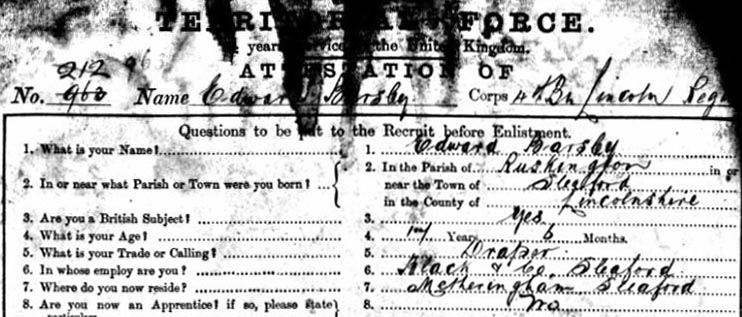 TERRITORIAL FORCE.
years' Service in the United Kingdom.
212
ATTESTATION OF
No. 960 Name Edward Barsby Corps 4th Bn Lincoln Reg
Questions to be put to the Recruit before Enlistment.
1. What is your Name? 1. Edward Barsby
2. In or near what Parish or Town were you born? 2. In the Parish of Ruskington in or
near the Town of Sleaford
in the County of Lincolnshire
3. Are you a British Subject? 3. Yes
4. What is your Age? 4. 17 Years 6 Months.
5. What is your Trade or Calling? 5. Draper
6. In whose employ are you? 6. & Co. Sleaford
7. Where do you now reside? 7. Metheringham Sleaford
8. Are you now an Apprentice? if so, please state 8. No
particulars